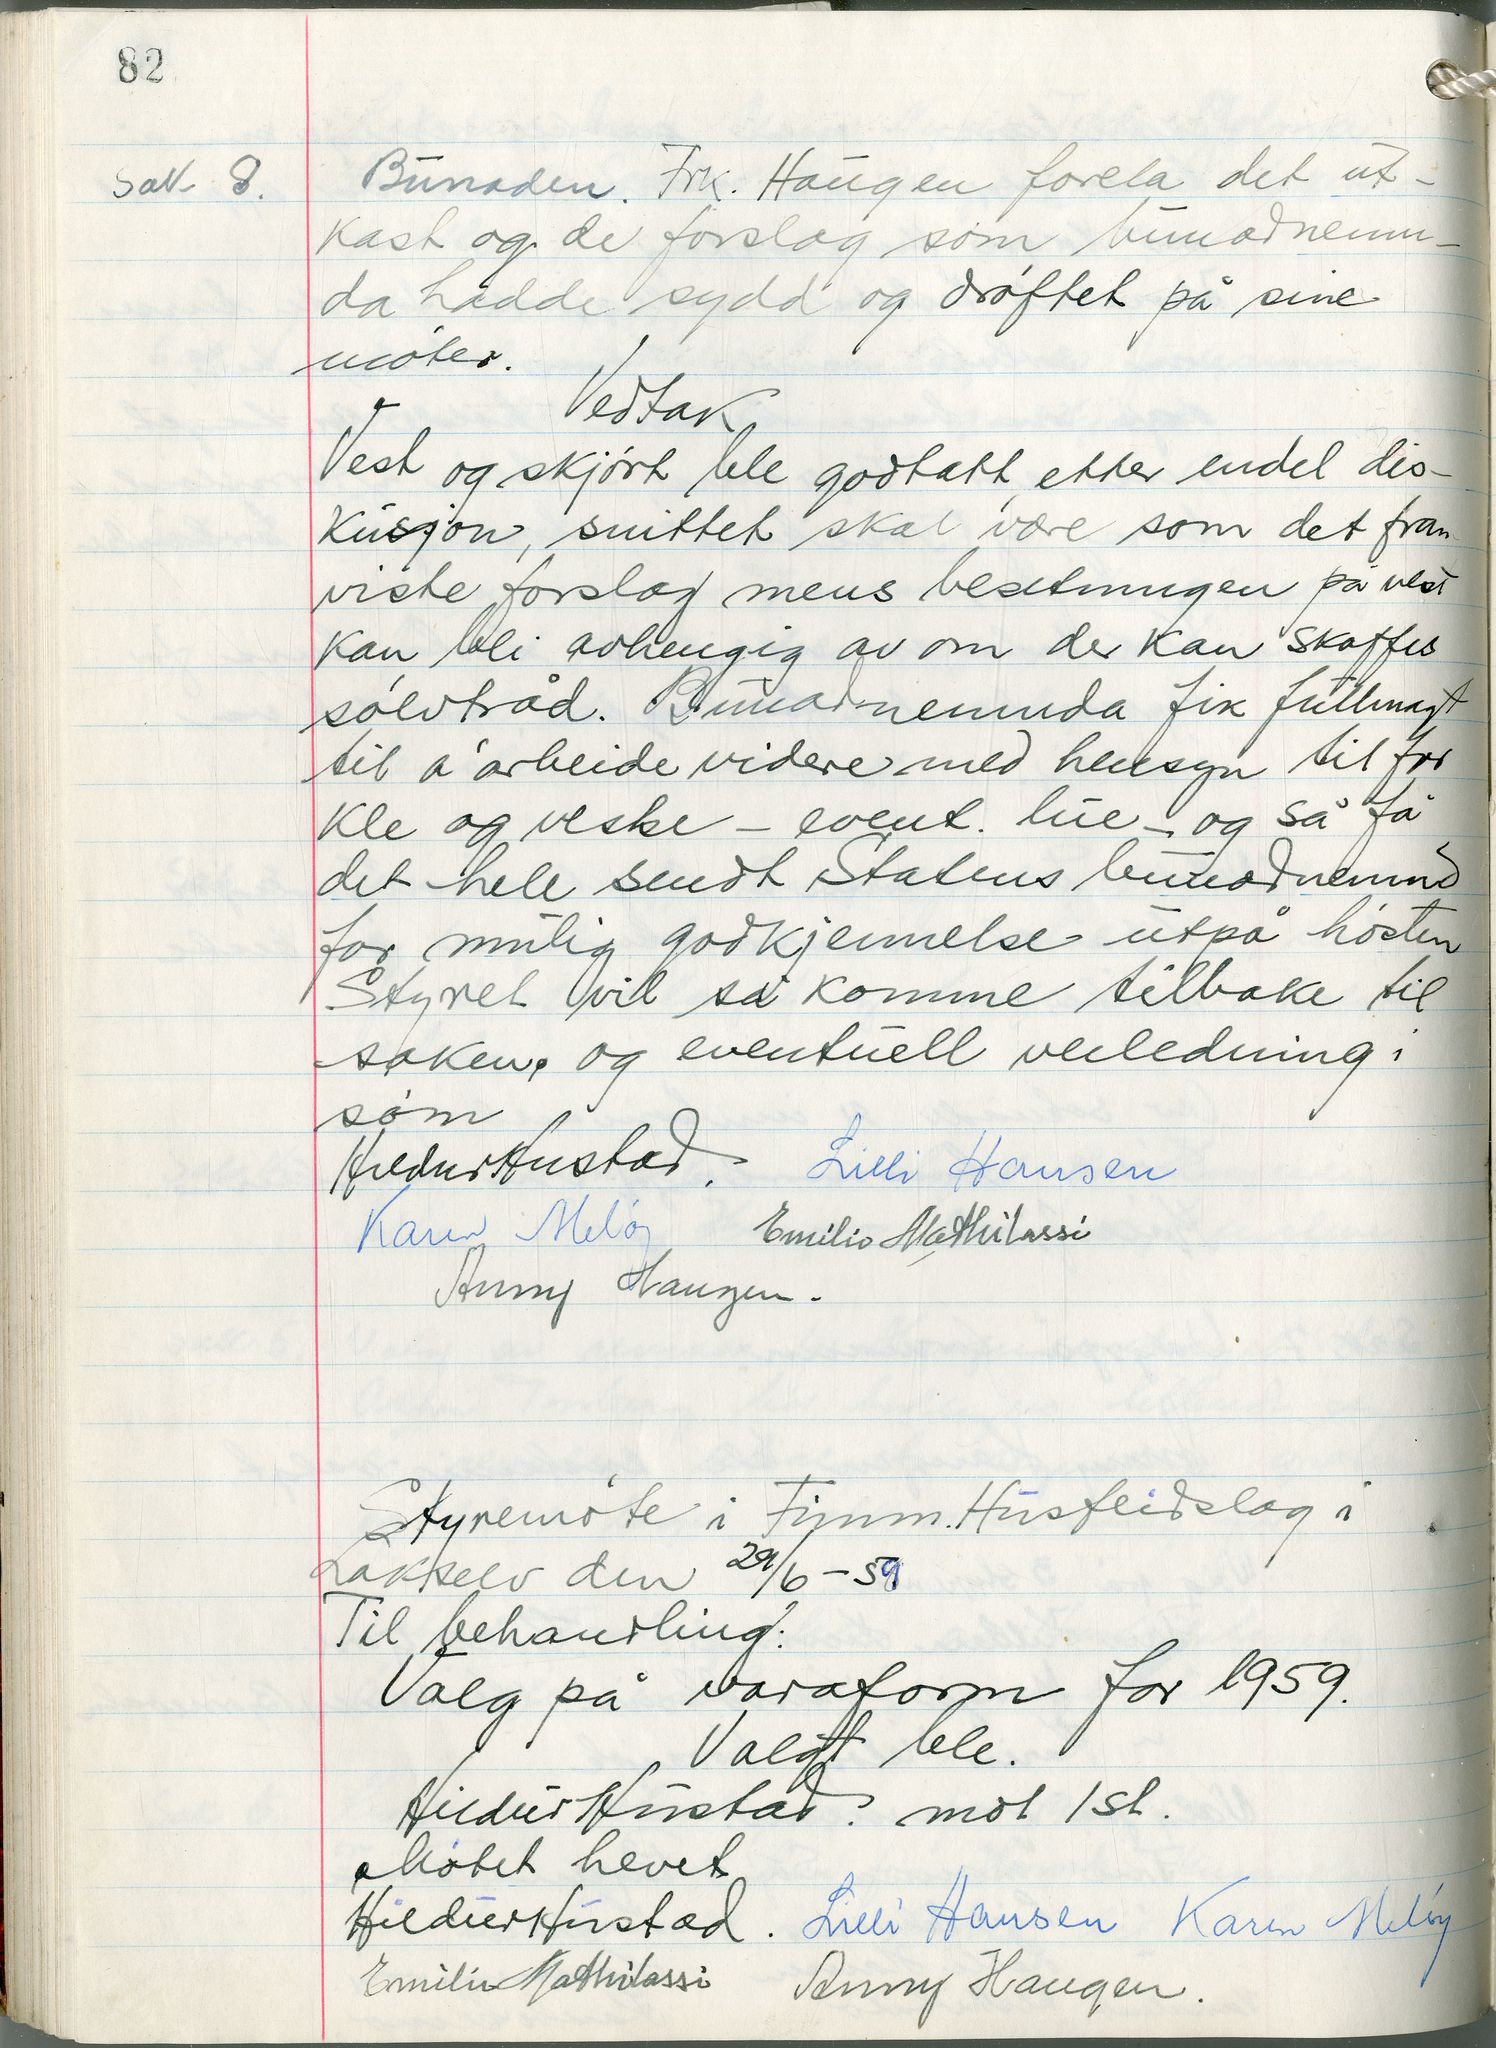 82
Sak 8. Bunaden. Frk. Haugen forela det ut-
kast og de forslag som bunadnemn-
da hadde sydd og drøftet på sine
møter.
Vedtak
Vest og skjørt ble godtatt etter endel dis-
kusjon, snittet skal være som det fram
viste forslag mens besetningen på vest
kan bli avhengig av om der kan skaffes
sølvtråd. Bunadnemnda fik fullmagt
til å arbeide videre med hensyn til for
kle og veske – event. lue – og så få
det hele sendt Statens bunadnemnd
for mulig godkjennelse utpå høsten
Styret vil så komme tilbake til
saken, og eventuell veiledning i
søm
Hildur Hustad. Lilli Hansen
Karen Meløy Emilie Mathilassi
Anny Haugen.
Styremøte i Finnm. Husflidslag i
Lakselv den 29/6 – 59
Til behandling:
Valg på varaform for 1959.
Valgt ble.
Hildur Hustad. mot 1 st.
Møtet hevet
Hildur Hustad. Lilli Hansen Karen Meløy
Emilie Mathilassi Anny Haugen.